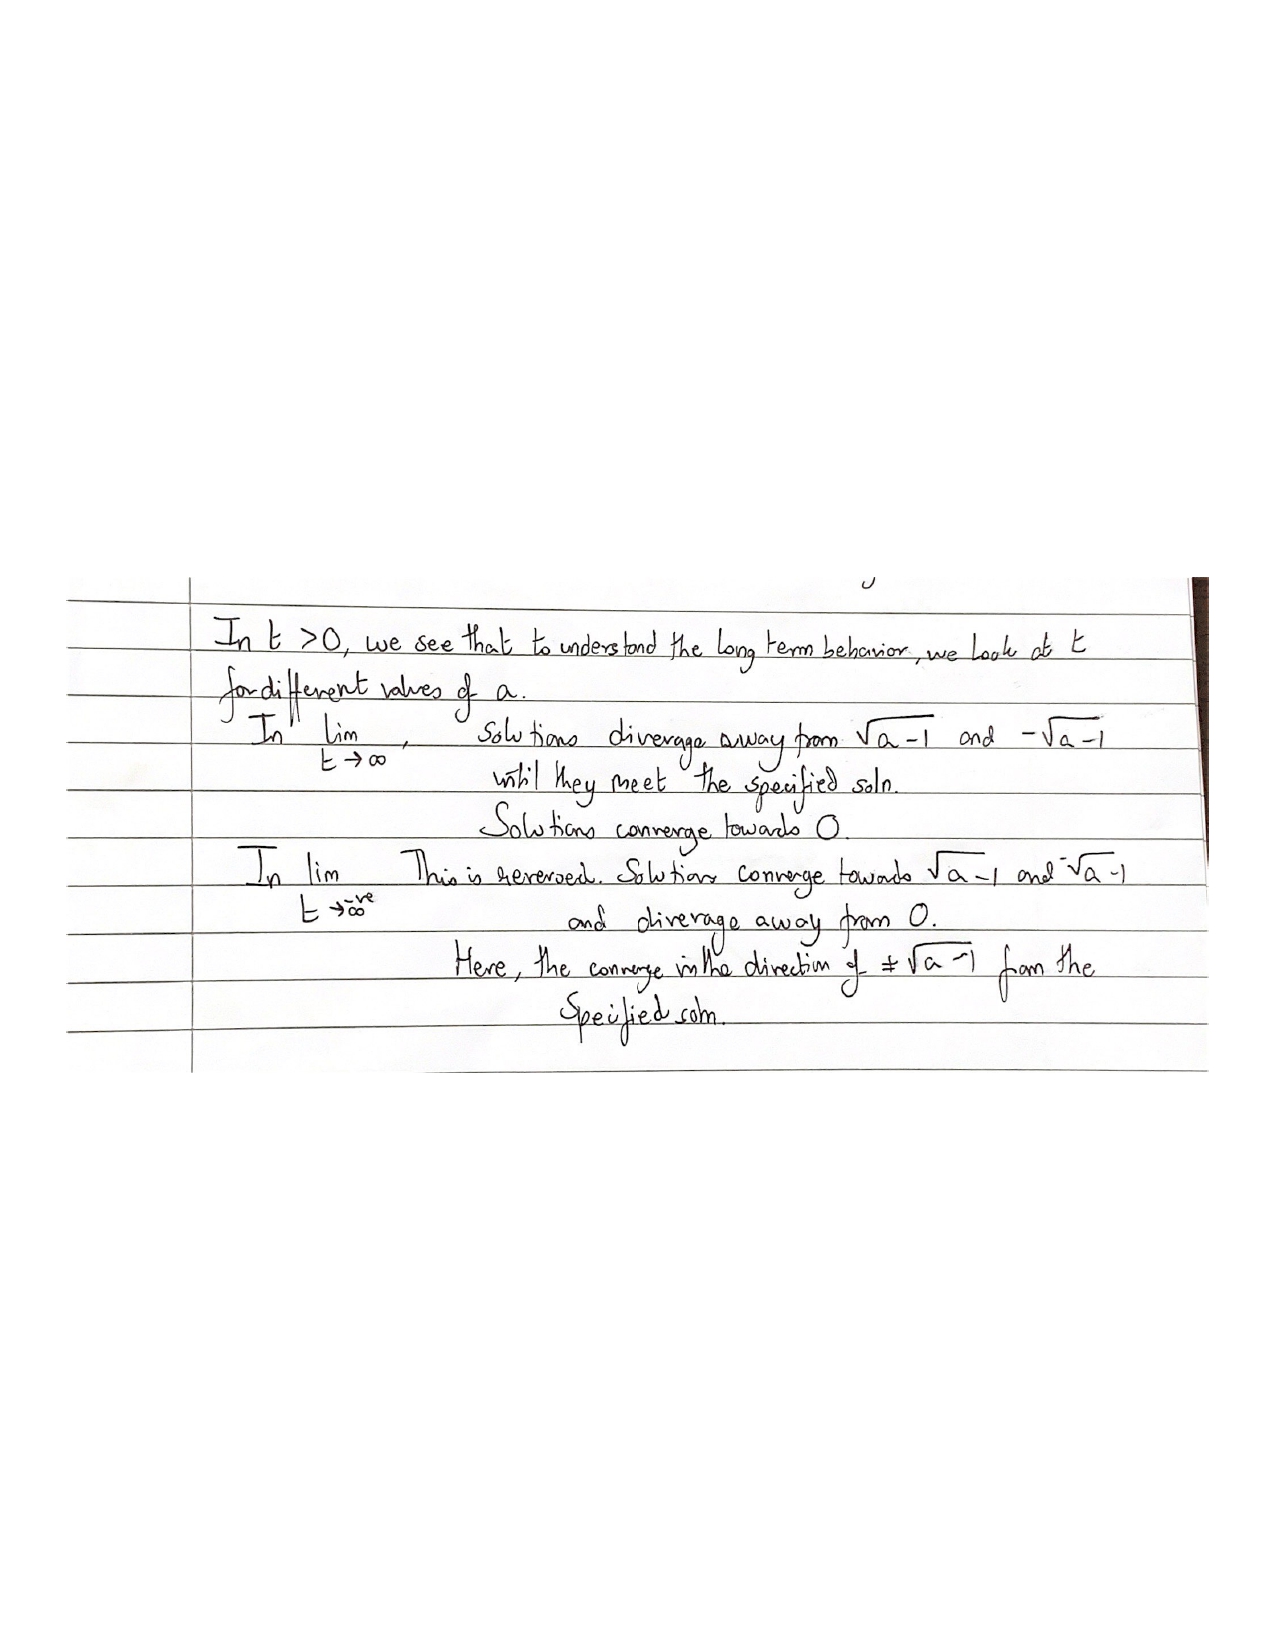 In t >0, we see that to understand the long term behavior, we look at t
for different values of a.
In lim t→∞ , Solutions diverage away from √a-1 and -√a-1
until they meet the specified soln.
Solutions converge towards 0.
In lim t→-ve ∞ This is reversed. Solutions converge towards √a-1 and -√a-1
and diverage away from 0.
Here, the converge in the direction of ±√a-1 from the
Specified soln.